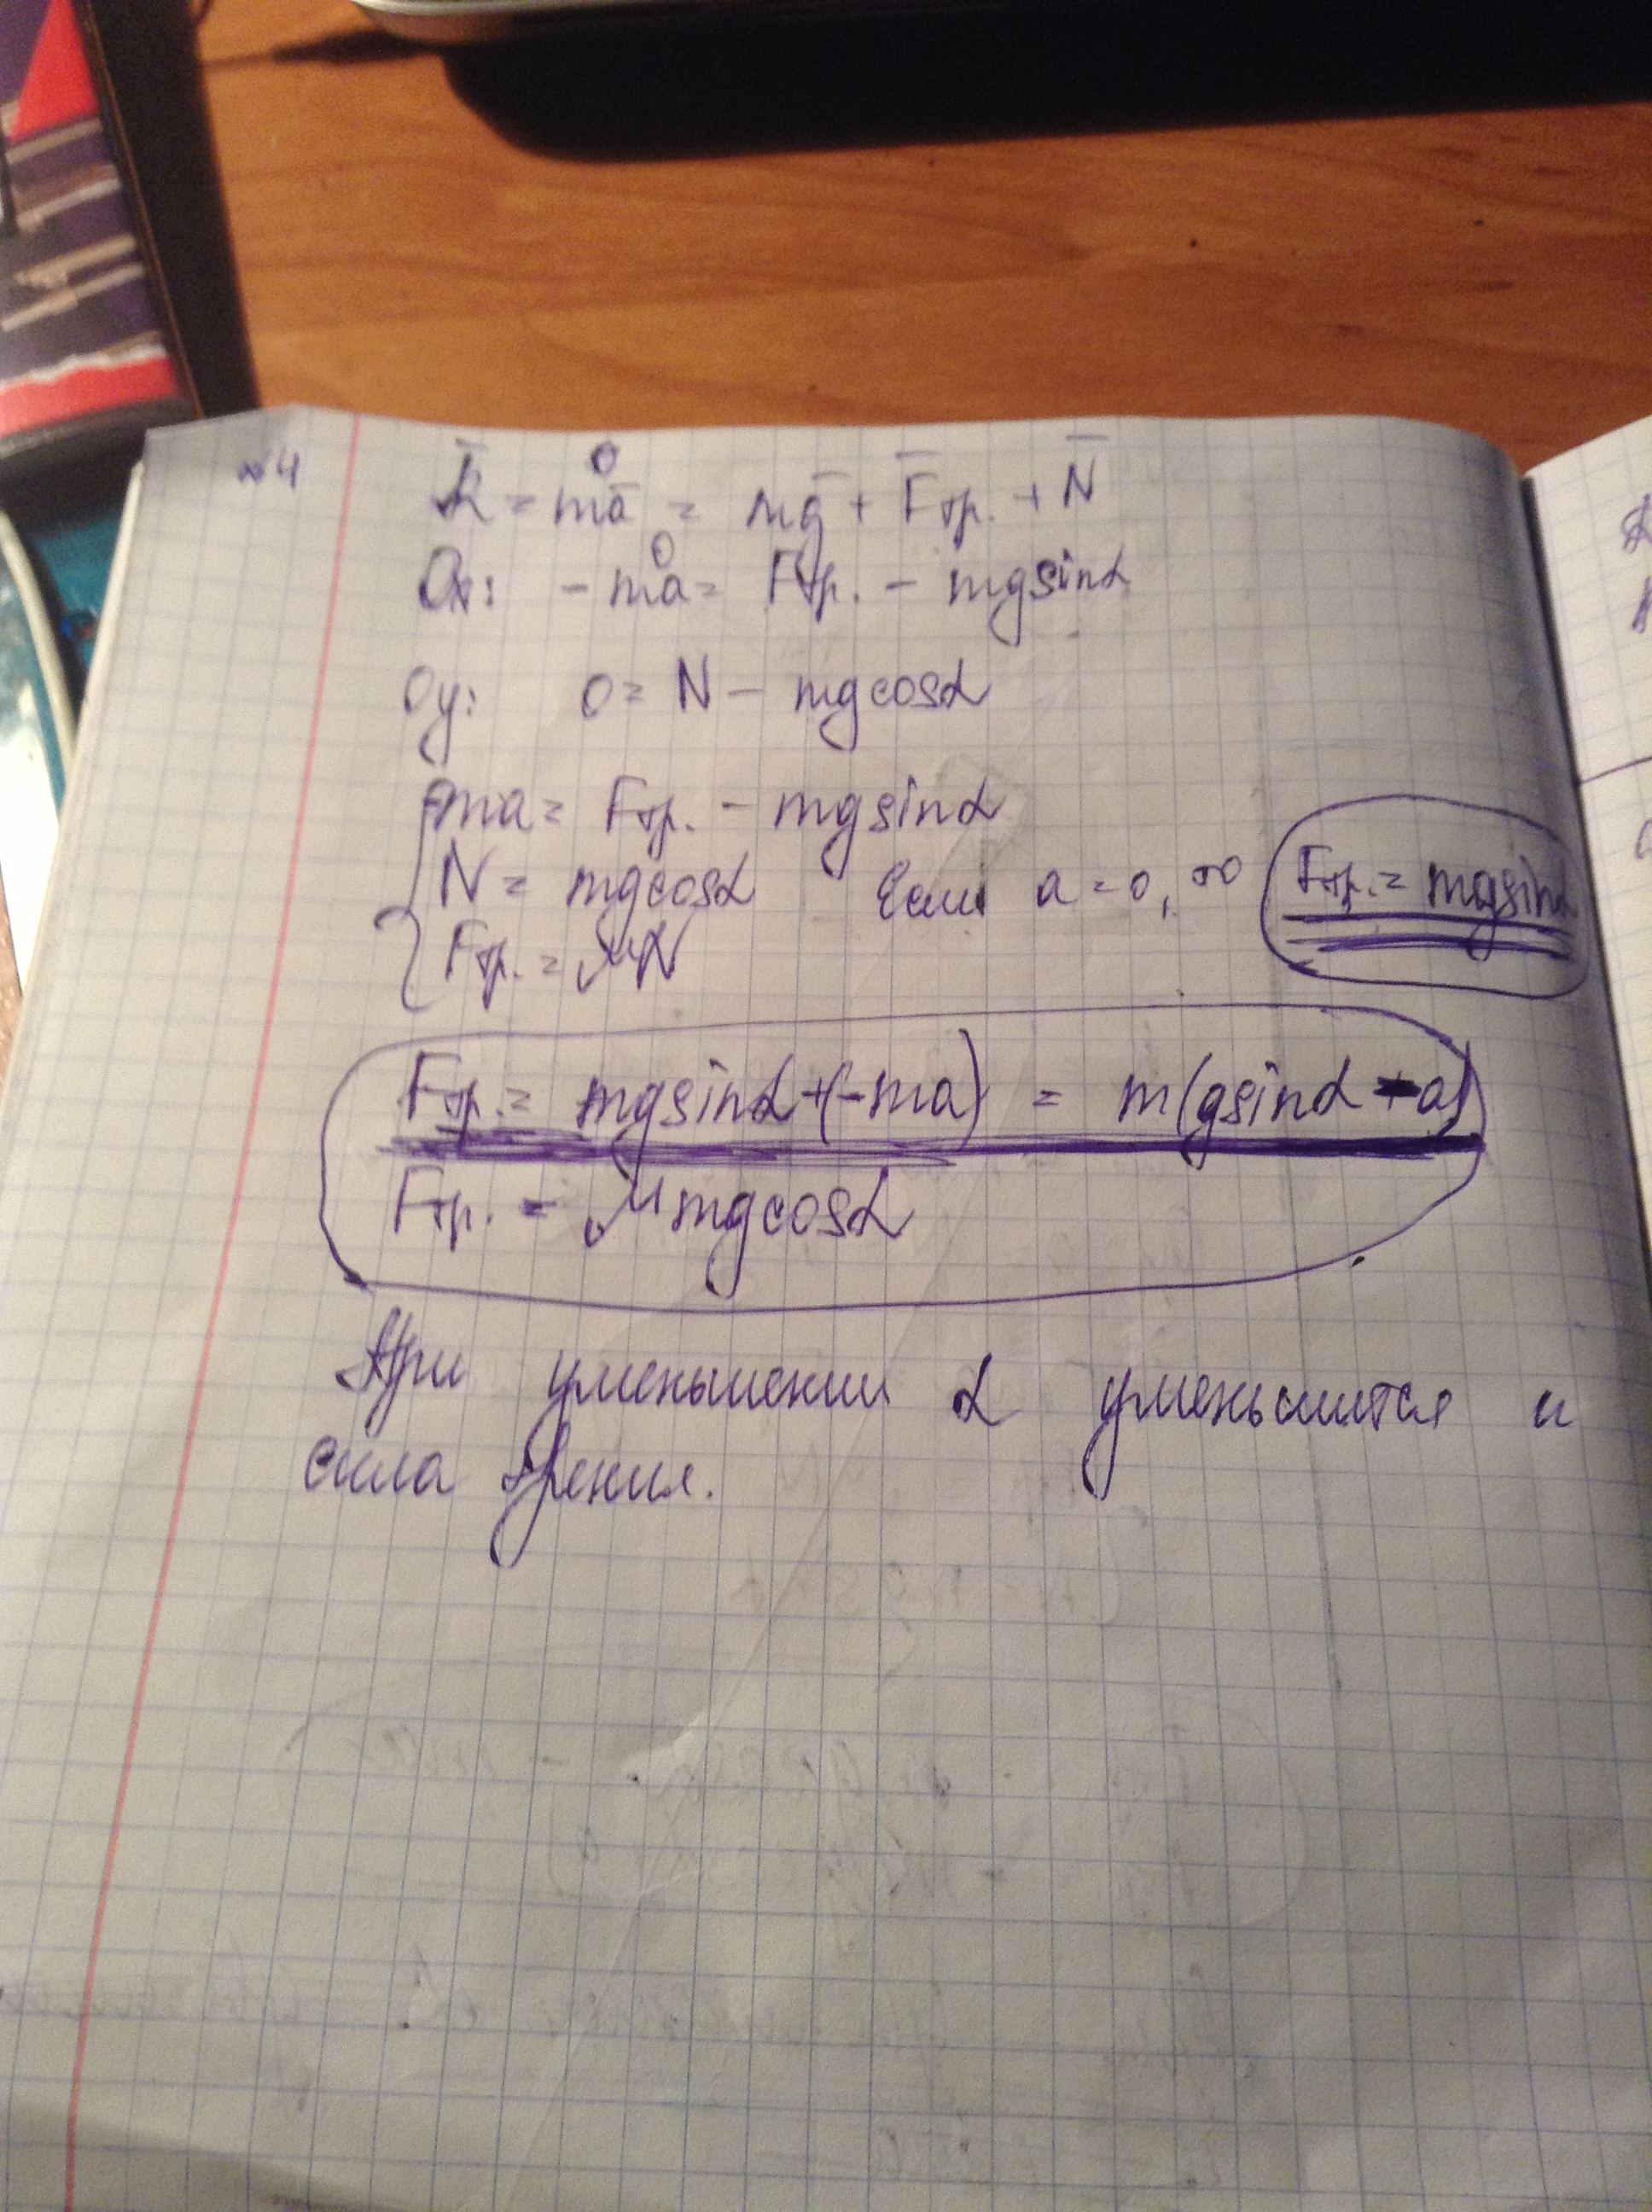 №4
R̄ = mā = mḡ + F̄тр. + N̄
0
Ox: -ma = Fтр. - mgsinα
0
Oy: 0 = N - mgcosα
-ma = Fтр. - mgsinα
N = mgcosα Если a = 0, то Fтр. = mgsinα
Fтр. = μN
Fтр. = mgsinα + (-ma) = m(gsinα - a)
Fтр. = μmgcosα
При уменьшении α уменьшится и
сила трения.